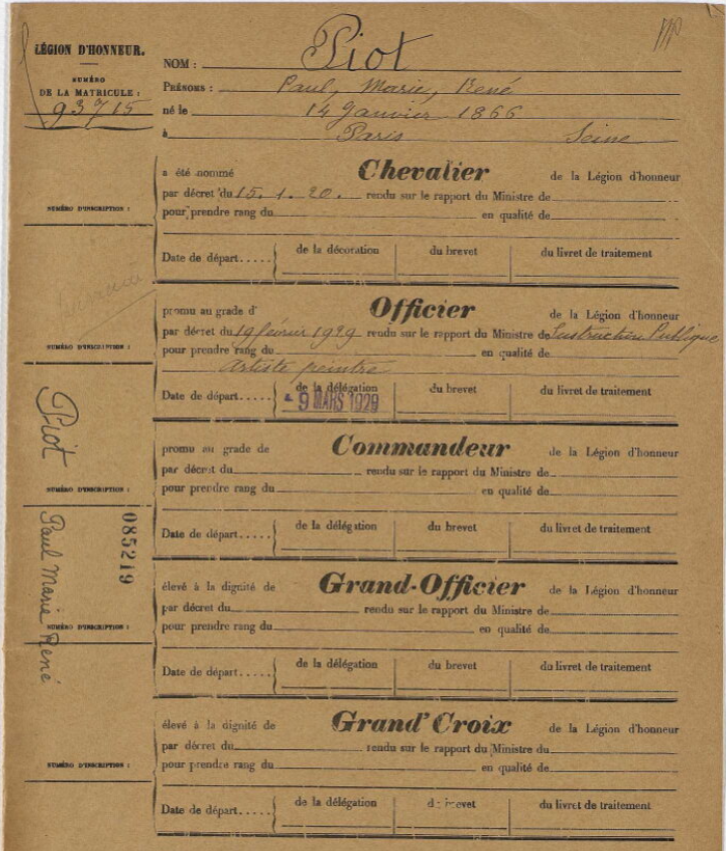 LÉGION D'HONNEUR.
NUMÉRO
DE LA MATRICULE :
93715
NOM : Piot
PRÉNOMS : Paul, Marie, René
né le 14 Janvier 1866
à Paris Seine
a été nommé Chevalier de la Légion d'honneur
par décret du 15. 1. 20. rendu sur le rapport du Ministre de
pour prendre rang du en qualité de
NUMÉRO D'INSCRIPTION :
Date de départ..... de la décoration du brevet du livret de traitement
promu au grade d' Officier de la Légion d'honneur
par décret du 19 février 1929 rendu sur le rapport du Ministre de Instruction Publique
NUMÉRO D'INSCRIPTION :
pour prendre rang du en qualité de
Artiste peintre
Date de départ..... de la délégation du brevet du livret de traitement
9 MARS 1929
promu au grade de Commandeur de la Légion d'honneur
par décret du rendu sur le rapport du Ministre de
pour prendre rang du en qualité de
NUMÉRO D'INSCRIPTION :
Date de départ..... de la délégation du brevet du livret de traitement
Piot Paul Marie René
085219
élevé à la dignité de Grand-Officier de la Légion d'honneur
par décret du rendu sur le rapport du Ministre de
pour prendre rang du en qualité de
NUMÉRO D'INSCRIPTION :
Date de départ..... de la délégation du brevet du livret de traitement
élevé à la dignité de Grand'Croix de la Légion d'honneur
par décret du rendu sur le rapport du Ministre du
pour prendre rang du en qualité de
NUMÉRO D'INSCRIPTION :
Date de départ..... de la délégation du brevet du livret de traitement